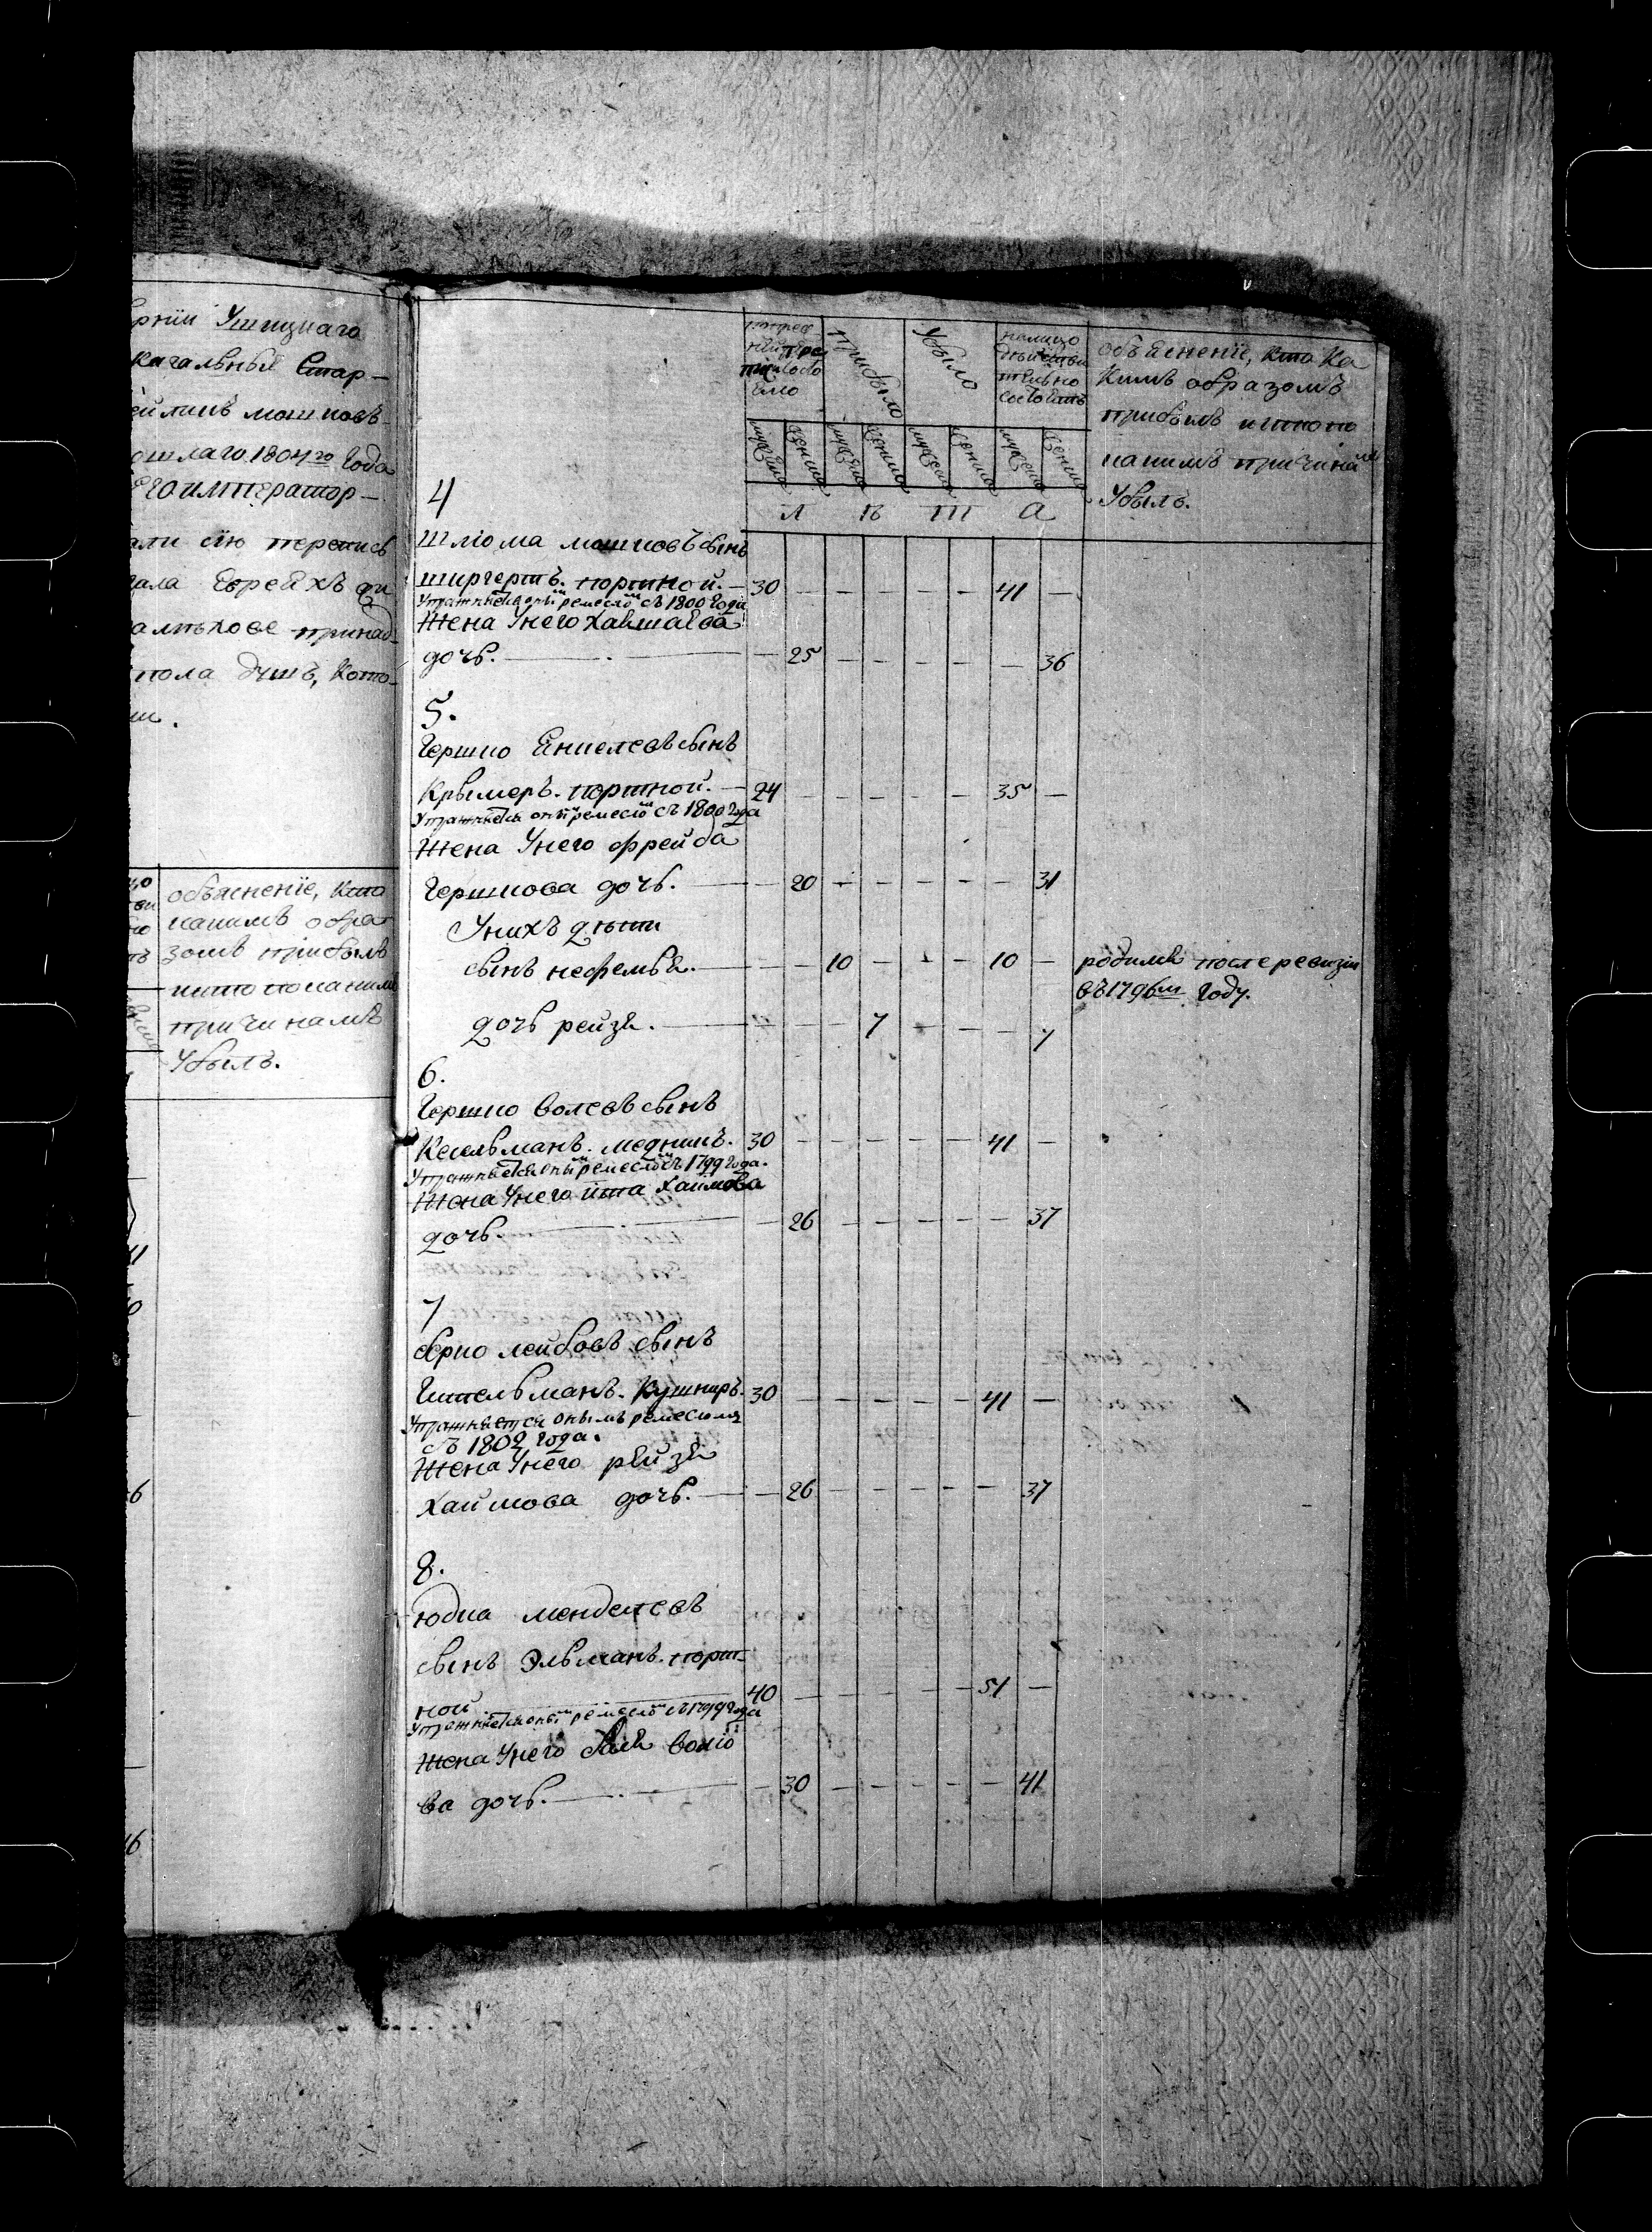 рнїи Ушицкаго
кагальныя Стар-
ейликъ мошковъ
ошлаго 1804го года
Его император-
али сію перепись
гала Евреяхъ ди
алиховѣ принад-
пола душъ, Кото-
объясненїе, кто
какимъ обра
зомъ прибылъ
и кто по какимъ
причинамъ
Убылъ.
по пред
ней пере
писи состо
яло
прибыло
Убыло
на лицо
действи
тельно
состоитъ
объясненїе, кто Ка
Кимъ образомъ
прибылъ и кто по
какимъ причинамъ
Убылъ.
мужеска женска мужеска женска мужеска женска мужеска женска
4
Л Ѣ Т А
Шліома мошковъ сынъ
ширгертъ. портной. — 30 — — — — — 41 —
Упражняется онымъ ремесломъ съ 1800 года
Жена Унего Хава
дочь. — — 25 — — — — — 36
5.
Гершко Янкелевъ сынъ
Крымеръ. портной. — 24 — — — — — 35 —
Упражняется онымъ ремесломъ съ 1800 года
Жена Унего фрейда
Гершкова дочь. — — 20 — — — — — 31
Унихъ дѣти
сынъ — — 10 — — — 10 — родился после ревизіи
въ 1796мъ году.
дочь рейзя. — — — 7 — — — 7
6.
Гершко волевъ сынъ
Кесельманъ. медникъ. 30 — — — — — 41 —
Упражняется онымъ ремесломъ съ 1799 года.
Жена Унего ита Хаимова
дочь. — — 26 — — — — — 37
7
берко лейбовъ сынъ
Гительманъ. Кушниръ. 30 — — — — — 41 —
Упражняется онымъ ремесломъ
съ 1802 года.
Жена Унего рейзя
Хаимова дочь. — — 26 — — — — — 37
8.
юдка менделевъ
сынъ Эльманъ. порт-
ной — 40 — — — — — 51 —
Упражняется онымъ ремесломъ съ 1799 года
Жена Унего волко
ва дочь. — — 30 — — — — — 41